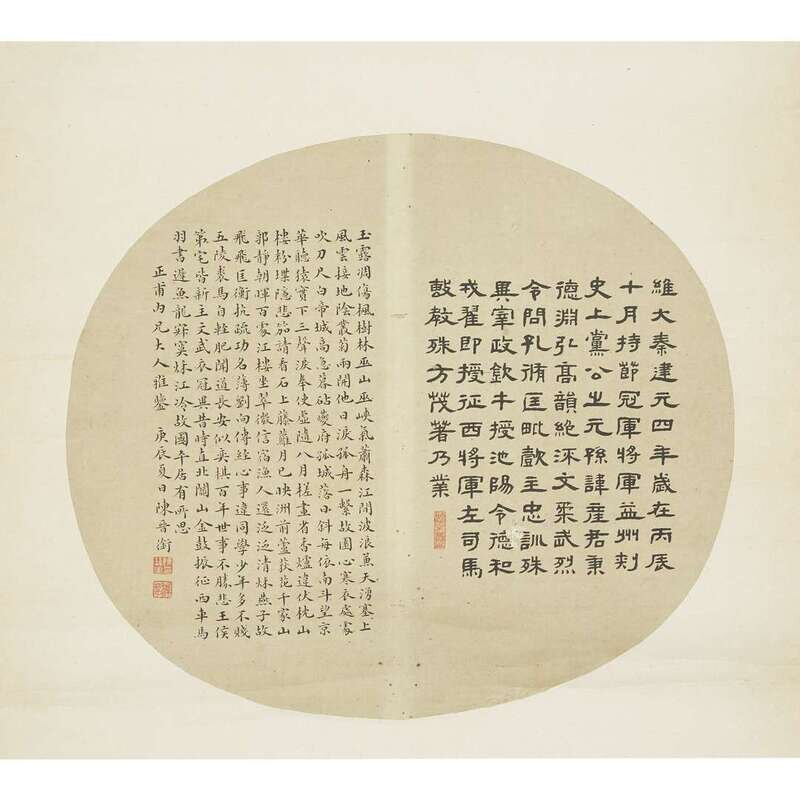 維大秦建元四年歲在丙辰
十月持節冠軍將軍益州刾
史上黨公之元孫諱產君秉
德淵弘高韻絕淥文柔武烈
令問孔脩匡毗歡主忠訓殊
異宰政欽牛授池陽令德和
戎翟即授征西將軍左司馬
敷教殊方茂著乃業
玉露凋傷楓樹林巫山巫峽氣蕭森江開波浪兼天湧塞上
風雲接地陰叢菊兩開他日淚孤舟一繫故園心寒衣處處
吹刀尺白帝城高急暮砧夔府孤城落日斜每依南斗望京
華聽猿實下三聲淚奉使虛隨八月槎畫省香爐違伏枕山
樓粉堞隱悲笳請看石上藤蘿月已映洲前蘆荻花千家山
郭靜朝暉百家江樓坐翠微信宿漁人還泛泛清秌燕子故
飛飛匡衡抗疏功名薄劉向傳經心事違同學少年多不賤
五陵裘馬自輕肥聞道長安似奕棋百年世事不勝悲王侯
第宅皆新主文武衣冠異昔時直北關山金鼓振征西車馬
羽書遲魚龍寂寞秌江冷故國平居有所思
正甫內兄大人雅鑒 庚辰夏日陳晉銜